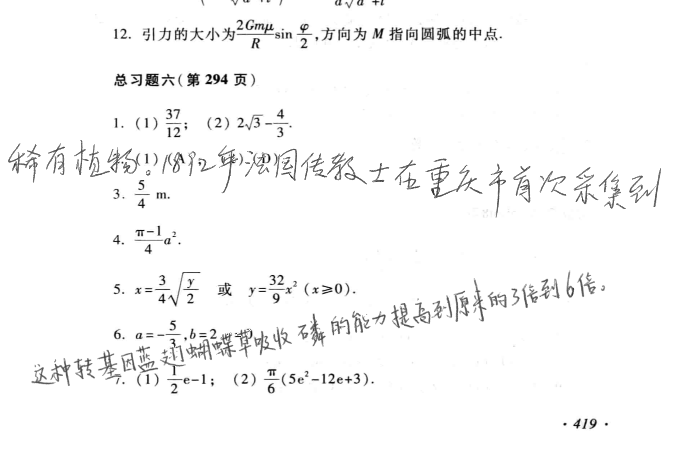 12. 引力的大小为 2Gmμ/R sin φ/2,方向为 M 指向圆弧的中点.
总习题六(第 294 页)
1. (1) 37/12; (2) 2√3-4/3.
稀有植物。1892年法国传教士在重庆市首次采集到
3. 5/4 m.
4. π-1/4 a².
5. x=3/4 √(y/2) 或 y=32/9 x² (x≥0).
6. a=-5/3,b=2
这种转基因蓝翅蝴蝶草吸收磷的能力提高到原来的3倍到6倍。
7. (1) 1/2 e-1; (2) π/6 (5e²-12e+3).
· 419 ·